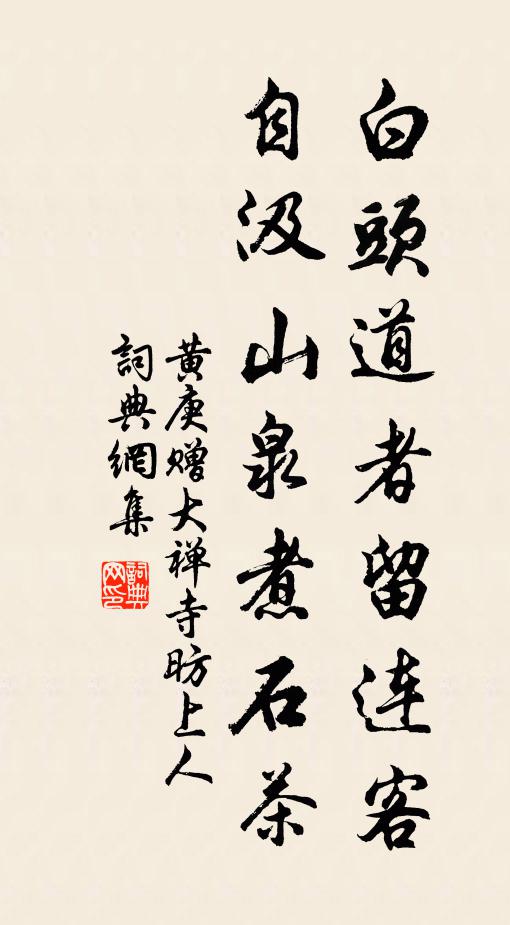 白頭道者留连客
自汲山泉煮石茶
黄庚赠大禅寺昉上人
詞典網集
詞典
网印